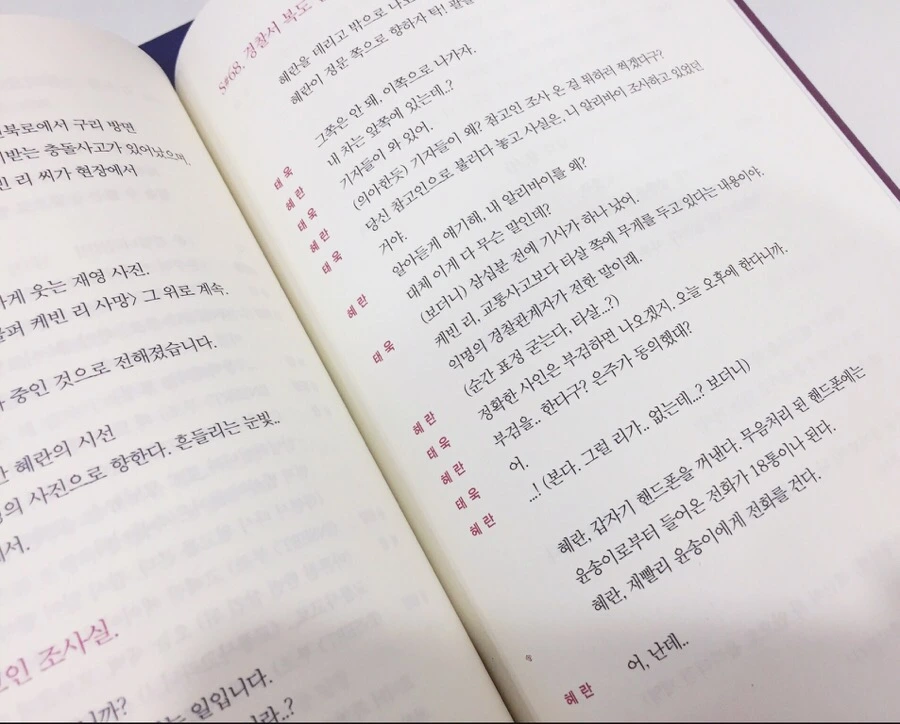 북로에서 구리 방면
받는 충돌사고가 있어났으며,
빈 리 씨가 현장에서
게 웃는 재영 사진.
퍼 케빈 리 사망〉 그 위로 계속.
중인 것으로 전해졌습니다.
혜란의 시선
의 사진으로 향한다. 흔들리는 눈빛..
서.
인 조사실.
니까?
는 일입니다.
라..?
S#68. 경찰서 복도
혜란을 데리고 밖으로 나오
혜란이 정문 쪽으로 향하자 탁! 팔을
태욱 그쪽은 안 돼, 이쪽으로 나가자.
혜란 내 차는 앞쪽에 있는데..?
태욱 기자들이 와 있어.
혜란 (의아한듯) 기자들이 왜? 참고인 조사 온 걸 뭐하러 찍겠다구?
태욱 당신 참고인으로 불러다 놓고 사실은, 니 알리바이 조사하고 있었던
거야.
혜란 알아듣게 얘기해, 내 알리바이를 왜?
대체 이게 다 무슨 말인데?
태욱 (보더니) 삼십분 전에 기사가 하나 났어.
케빈 리, 교통사고보다 타살 쪽에 무게를 두고 있다는 내용이야.
익명의 경찰관계자가 전한 말이래.
혜란 (순간 표정 굳는다, 타살...?)
태욱 정확한 사인은 부검하면 나오겠지. 오늘 오후에 한다니까.
혜란 부검을.. 한다구? 은주가 동의했대?
태욱 어.
혜란 ...! (본다. 그럴 리가.. 없는데...? 보더니)
혜란, 갑자기 핸드폰을 꺼낸다. 무음처리 된 핸드폰에는
윤송이로부터 들어온 전화가 18통이나 된다.
혜란, 재빨리 윤송이에게 전화를 건다.
혜란 어, 난데..